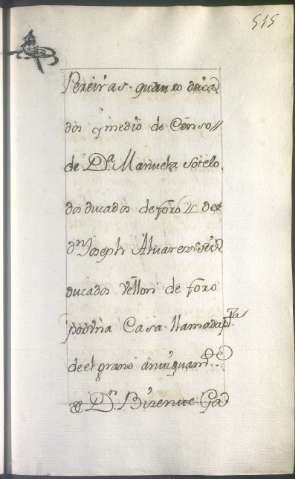 515
Pereiras quatro duca
dos y medio de Censo//
de Dª Manuela Sotelo
dos ducados de foro//
dn Joseph Alvarez seis
ducados Vellon de foro
por Vna Casa llamada
de el
Dn. Bizente